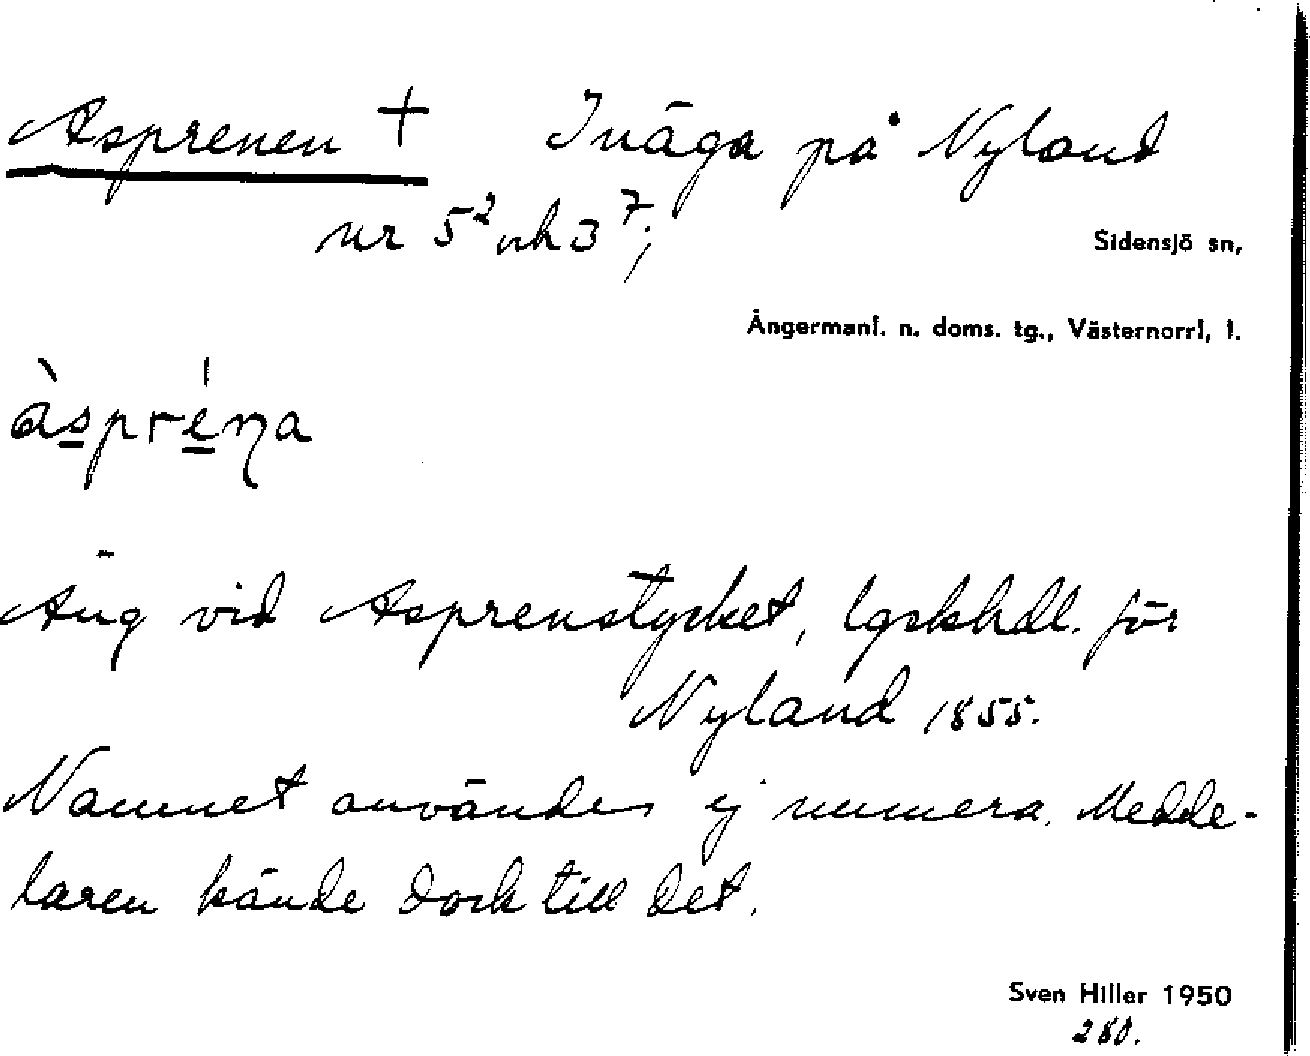 Asprenen † Inäga på Nyland
nr 5² och 3⁷;
Sidensjö sn,
Ångermanl. n. doms. tg., Västernorrl, l.
àspréna
Äng vid Asprenstycket, lgskhdl. för
Nyland 1855.
Namnet användes ej numera. Medde-
laren kände dock till det.
Sven Hiller 1950
280.